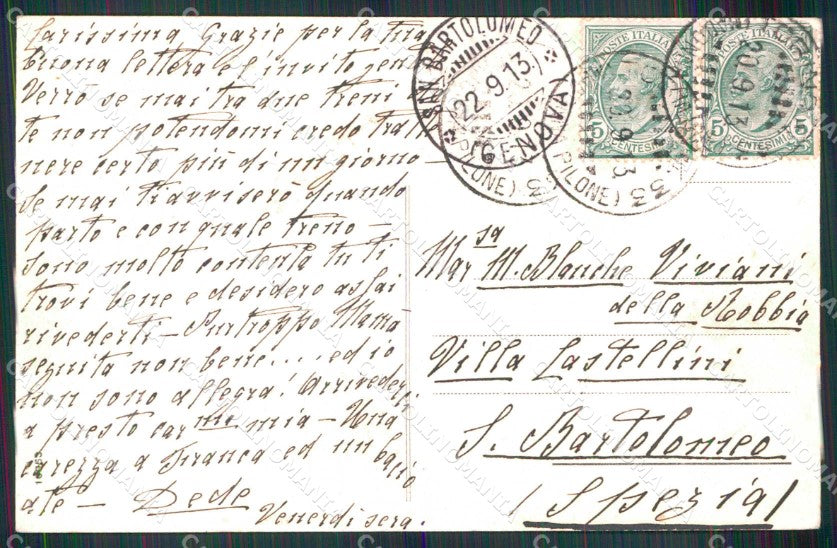 Carissima Grazie per la tua
buona lettera e l'invito gen
Verrò se mai tra due treni
te non potendomi credo trat
nere certo più di un giorno —
se mai t'avviserò quando
parto e con quale treno —
sono molto contenta tu ti
trovi bene e desidero assai
rivederti — Purtroppo Mama
seguita non bene.... ed io
non sono allegra! Arrivederci
a presto car ma mia — Una
carezza a Franca ed un bacio
a te — Dede
Venerdi sera.
SAN BARTOLOMEO
22.9.13
(GENOVA)
POSTE ITALIANE
5 CENTESIMI 5
POSTE ITALIANE
5 CENTESIMI 5
20.9.13
20.9.13
Mar sa M. Blanche Viviani
della Robbia
Villa Castellini
S. Bartolomeo
(Spezia)
CARTOLINOMANIA